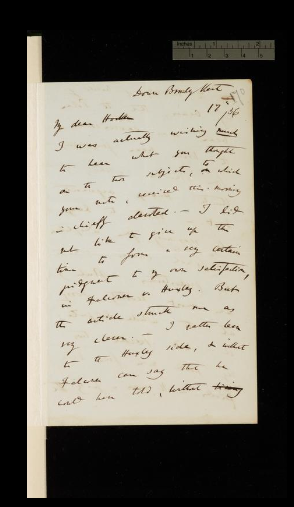 Down Bromley Kent
17
My dear Hooker
I was actually wishing much
to hear what you thought
on to two subjects, to which
your note, received this morning
is chiefly devoted. — I did
not like to give up the
time to form a very certain
judgment to my own satisfaction,
in Falconer vs Huxley. But
the article struck me as
very clever. — I rather lean
to the Huxley side, for without
Falconer can say that he
could have told, without